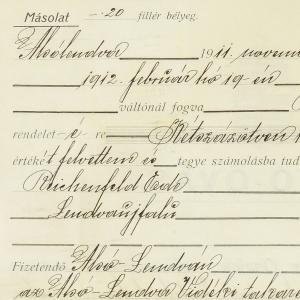 Másolat -.20 fillér bélyeg.
Alsólendva 1911. novem
1912. február hó 19-én
váltónál fogva
rendelet-é re Kétszázötven
értékét felvettem és tegye számolásba tud
Reichenfeld Ede
Lendvaujfalu
Fizetendő Alsó-Lendván
az Alsó-Lendva Vidéki takar